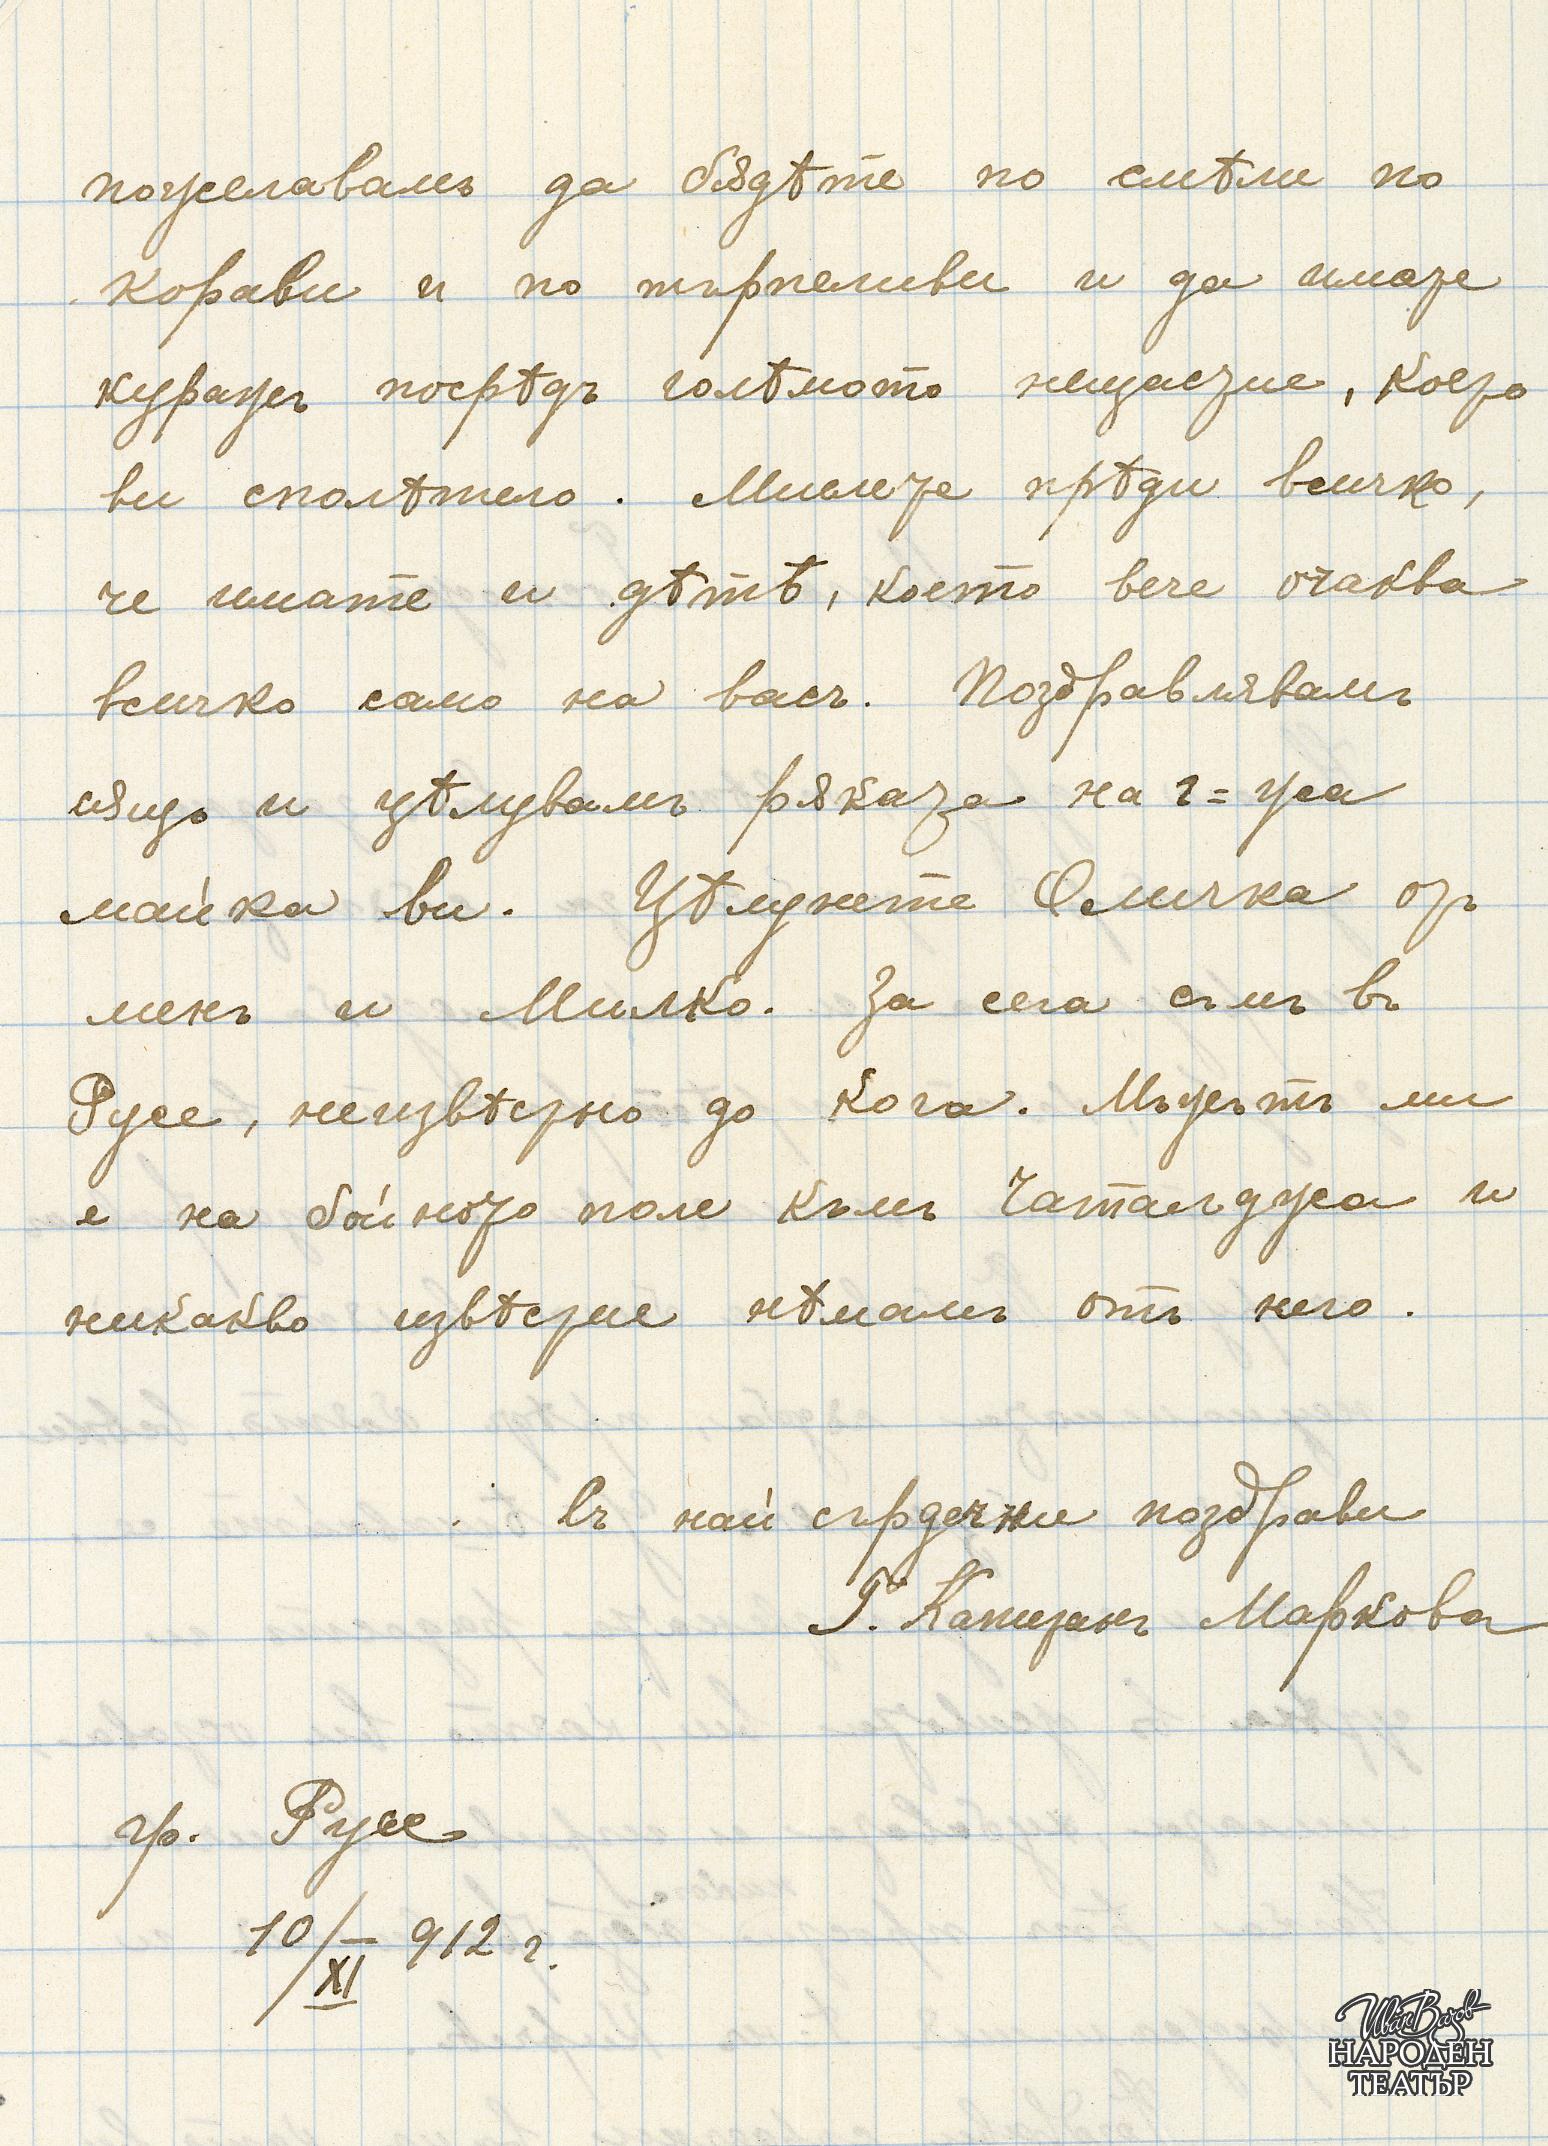 пожелавамъ да бѫдѣте по смѣли по
корави и по търпеливи и да имате
куражъ посрѣдъ голѣмото нещастие, което
ви сполѣтело. Мислете прѣди всичко,
че имате и дѣтѣ, което вече очаква
всичко само на васъ. Поздравлявамъ
сѫщо и цѣлувамъ рѫката на г=жа
майка ви. Цѣлунете Оличка отъ
менъ и Милко. За сега съмъ въ
Русе, неизвѣстно до кога. Мъжътъ ми
е на бойното поле къмъ Чаталджа и
никакво извѣстие нѣмамъ отъ него.
въ най сърдечни поздрави
Г. Капитанъ Маркова
гр. Русе
10/XI 912 г.
Иван Вазов
НАРОДЕН
ТЕАТЪР